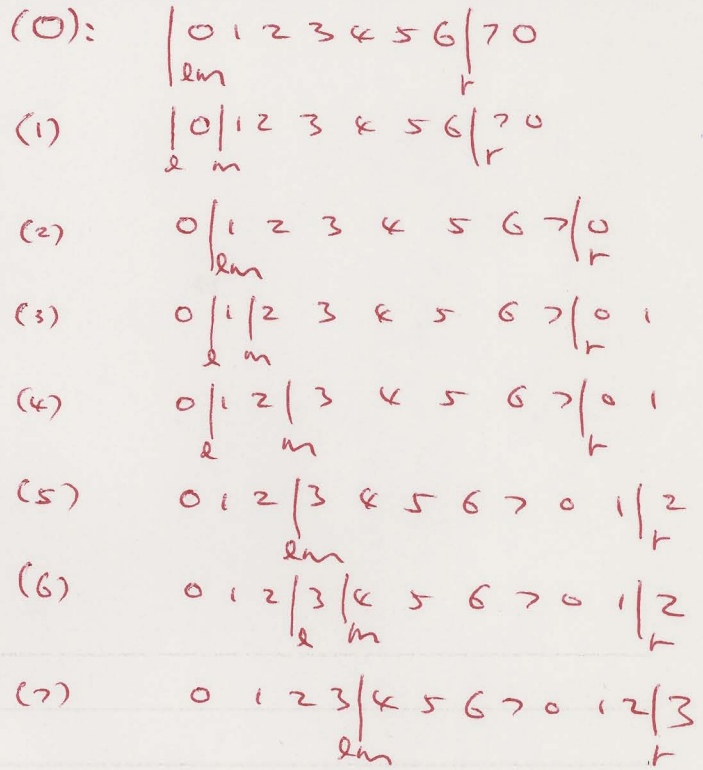 (0): |0 1 2 3 4 5 6|7 0
lm r
(1) |0|1 2 3 4 5 6|7 0
l m r
(2) 0|1 2 3 4 5 6 7|0
lm r
(3) 0|1|2 3 4 5 6 7|0 1
l m r
(4) 0|1 2|3 4 5 6 7|0 1
l m r
(5) 0 1 2|3 4 5 6 7 0 1|2
lm r
(6) 0 1 2|3|4 5 6 7 0 1|2
l m r
(7) 0 1 2 3|4 5 6 7 0 1 2|3
lm r